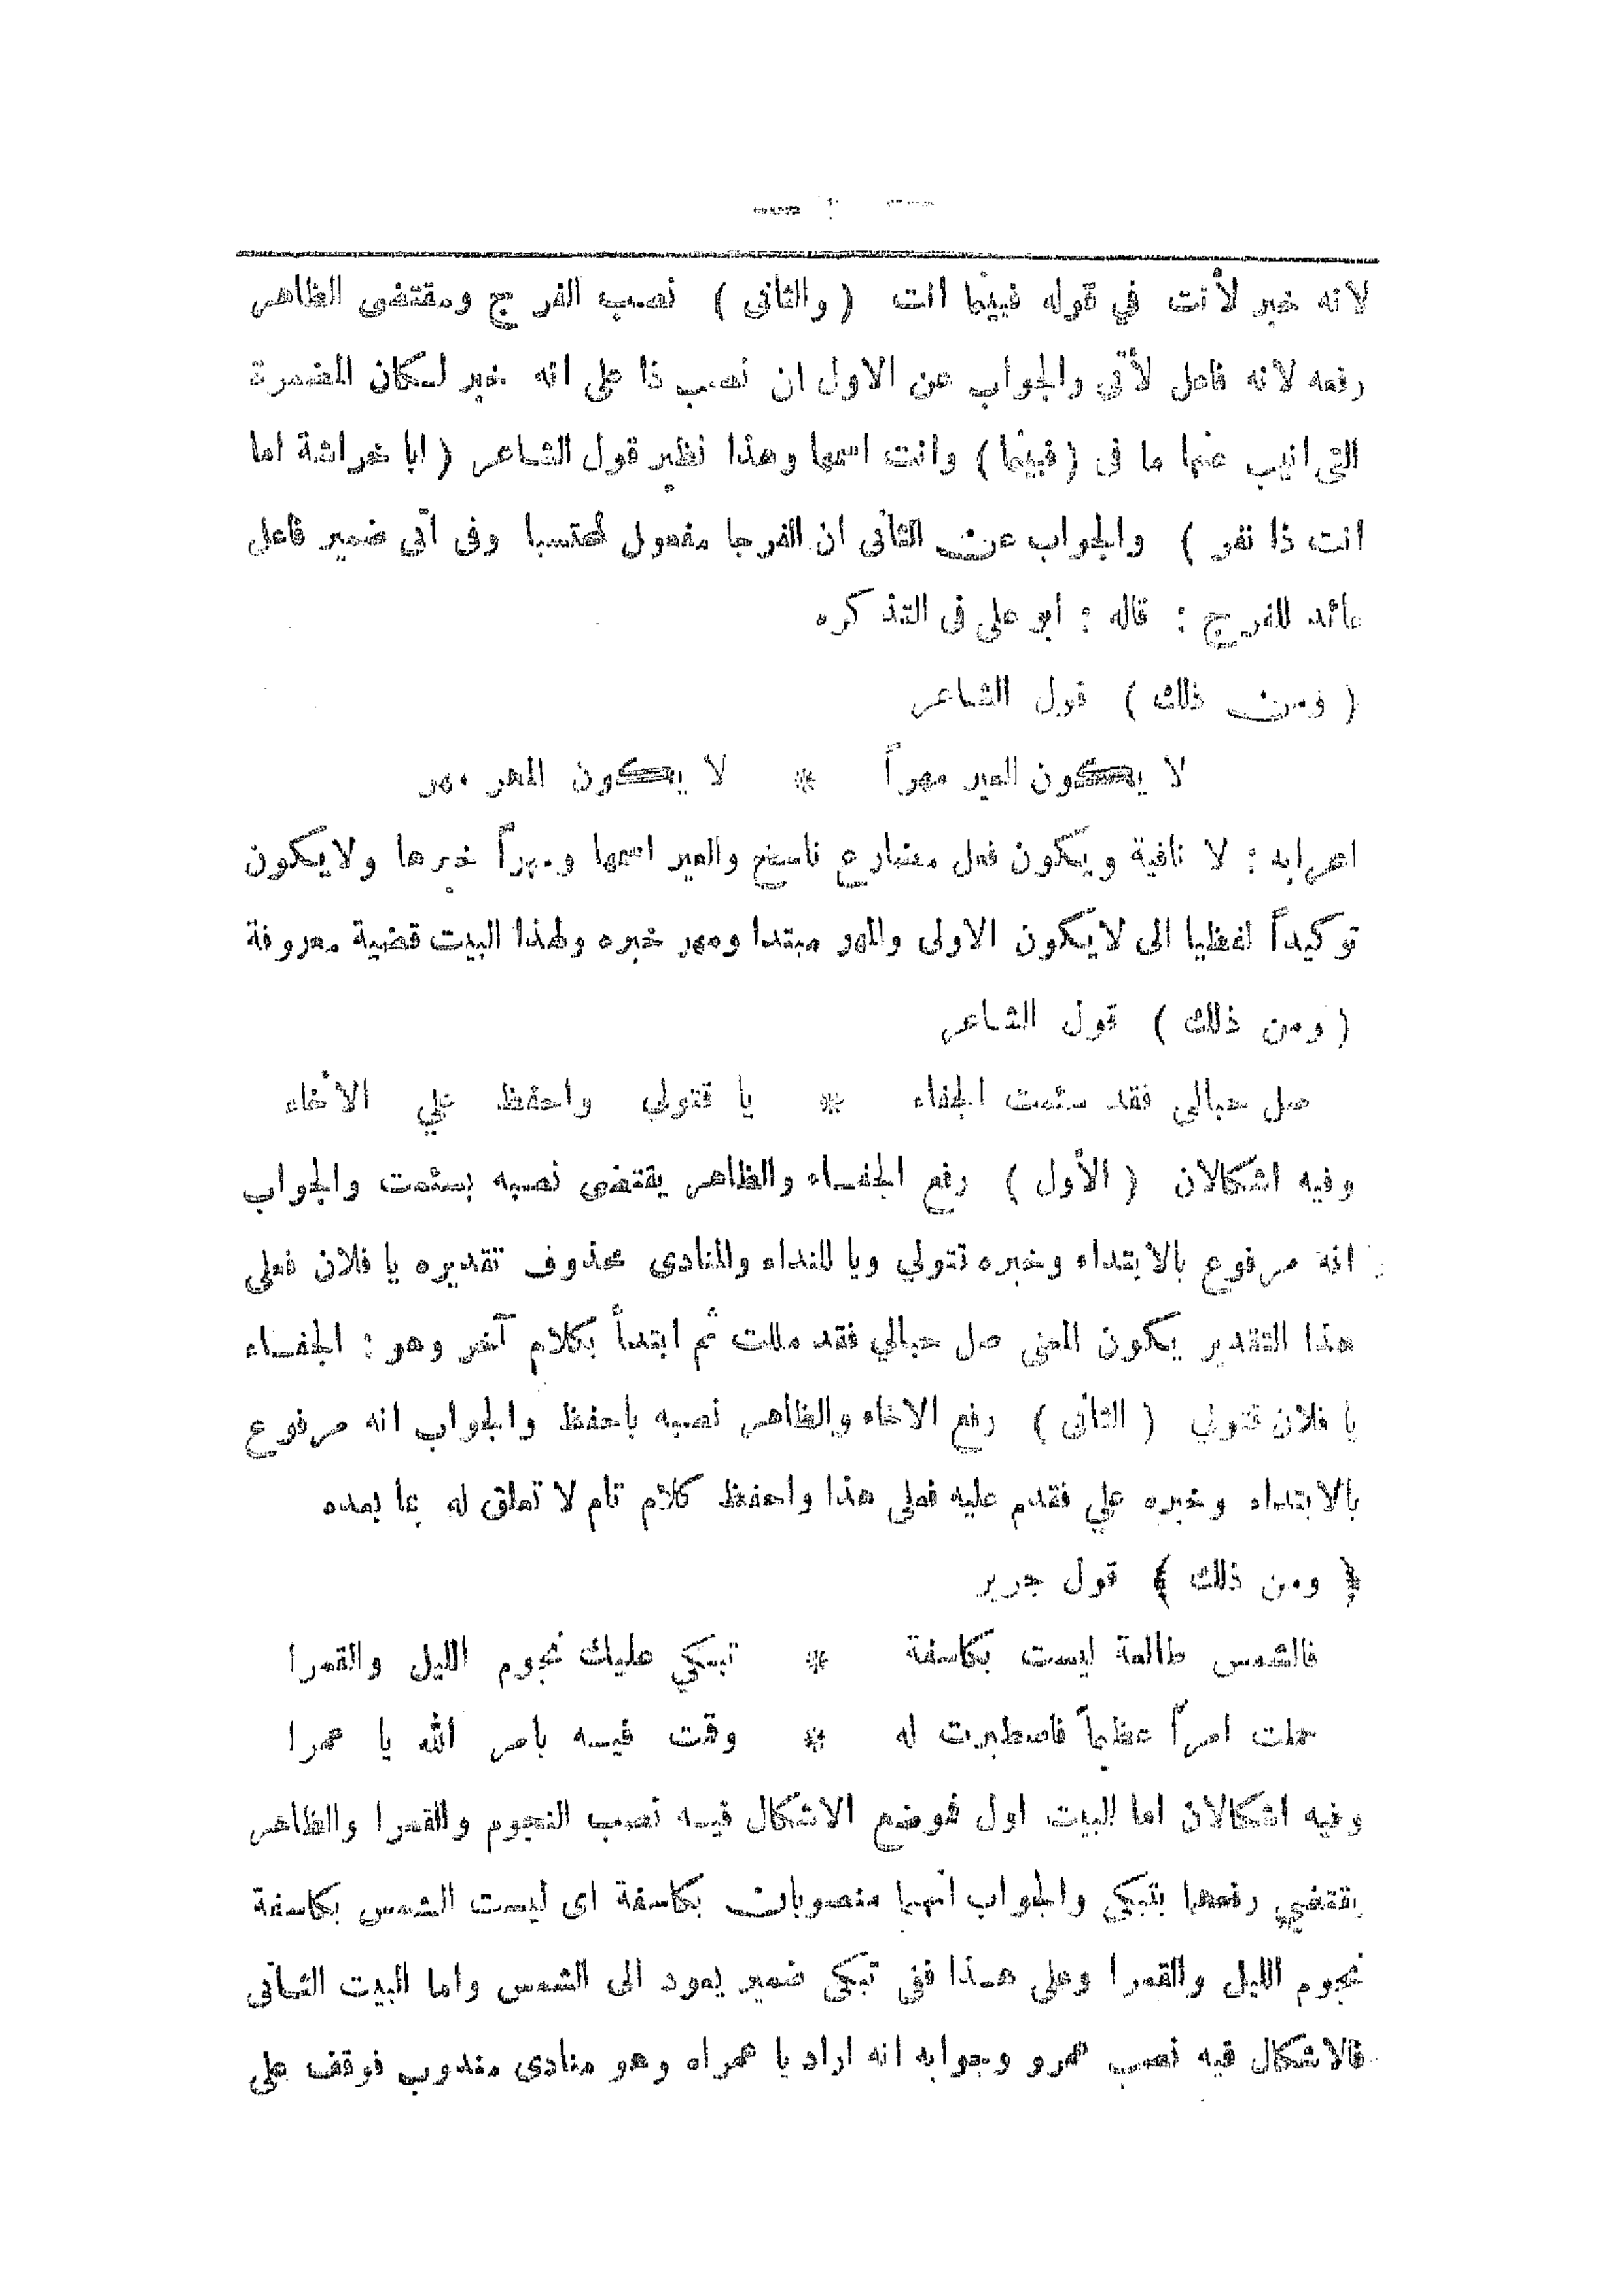 لانه خبر لأنت في قوله فبينما انت ( والثانى ) نصب الفرج ومقتضى الظاهر
رفعه لانه فاعل لأتى والجواب عن الاول ان نصب ذا على انه خبر لكان المضمرة
التى انيب عنها ما فى ( فبينما ) وانت اسمها وهذا نظير قول الشاعر ( ابا خراشة اما
انت ذا نفر ) والجواب عن الثانى ان الفرجا مفعول لمحتسبا وفى اتى ضمير فاعل
عائد للفرج : قاله : أبو على فى التذكره
( ومن ذلك ) قول الشاعر
لا يكون العير مهراً * لا يكون المهر مهر
اعرابه : لا نافية ويكون فعل مضارع ناسخ والعير اسمها ومهراً خبرها ولايكون
توكيداً لفظيا الى لايكون الاولى والمهر مبتدا ومهر خبره ولهذا البيت قضية معروفة
( ومن ذلك ) قول الشاعر
صل حبالى فقد سئمت الجفاء * يا قتولي واحفظ علي الاخاء
وفيه اشكالان ( الأول ) رفع الجفاء والظاهر يقتضى نصبه بسئمت والجواب
انه مرفوع بالابتداء وخبره تتولي ويا للنداء والمنادى محذوف تقديره يا فلان فعلى
هذا التقدير يكون المعنى صل حبالي فقد مللت ثم ابتدأ بكلام آخر وهو : الجفاء
يا فلان قتولي ( الثانى ) رفع الاخاء والظاهر نصبه باحفظ والجواب انه مرفوع
بالابتداء وخبره علي فقدم عليه فعلى هذا واحفظ كلام تام لا تعلق له بما بعده
﴿ ومن ذلك ﴾ قول جرير
فالشمس طالعة ليست بكاسفة * تبكي عليك نجوم الليل والقمرا
حملت امراً عظيماً فاصطبرت له * وقمت فيه بامر الله يا عمرا
وفيه اشكالان اما البيت اول فموضع الاشكال فيه نصب النجوم والقمرا والظاهر
يقتضي رفعهما بتبكى والجواب انهما منصوبان بكاسفة اى ليست الشمس بكاسفة
نجوم الليل والقمرا وعلى هذا ففى تبكى ضمير يعود الى الشمس واما البيت الثانى
فالاشكال فيه نصب عمرو وجوابه انه اراد يا عمراه وهو منادى مندوب فوقف على